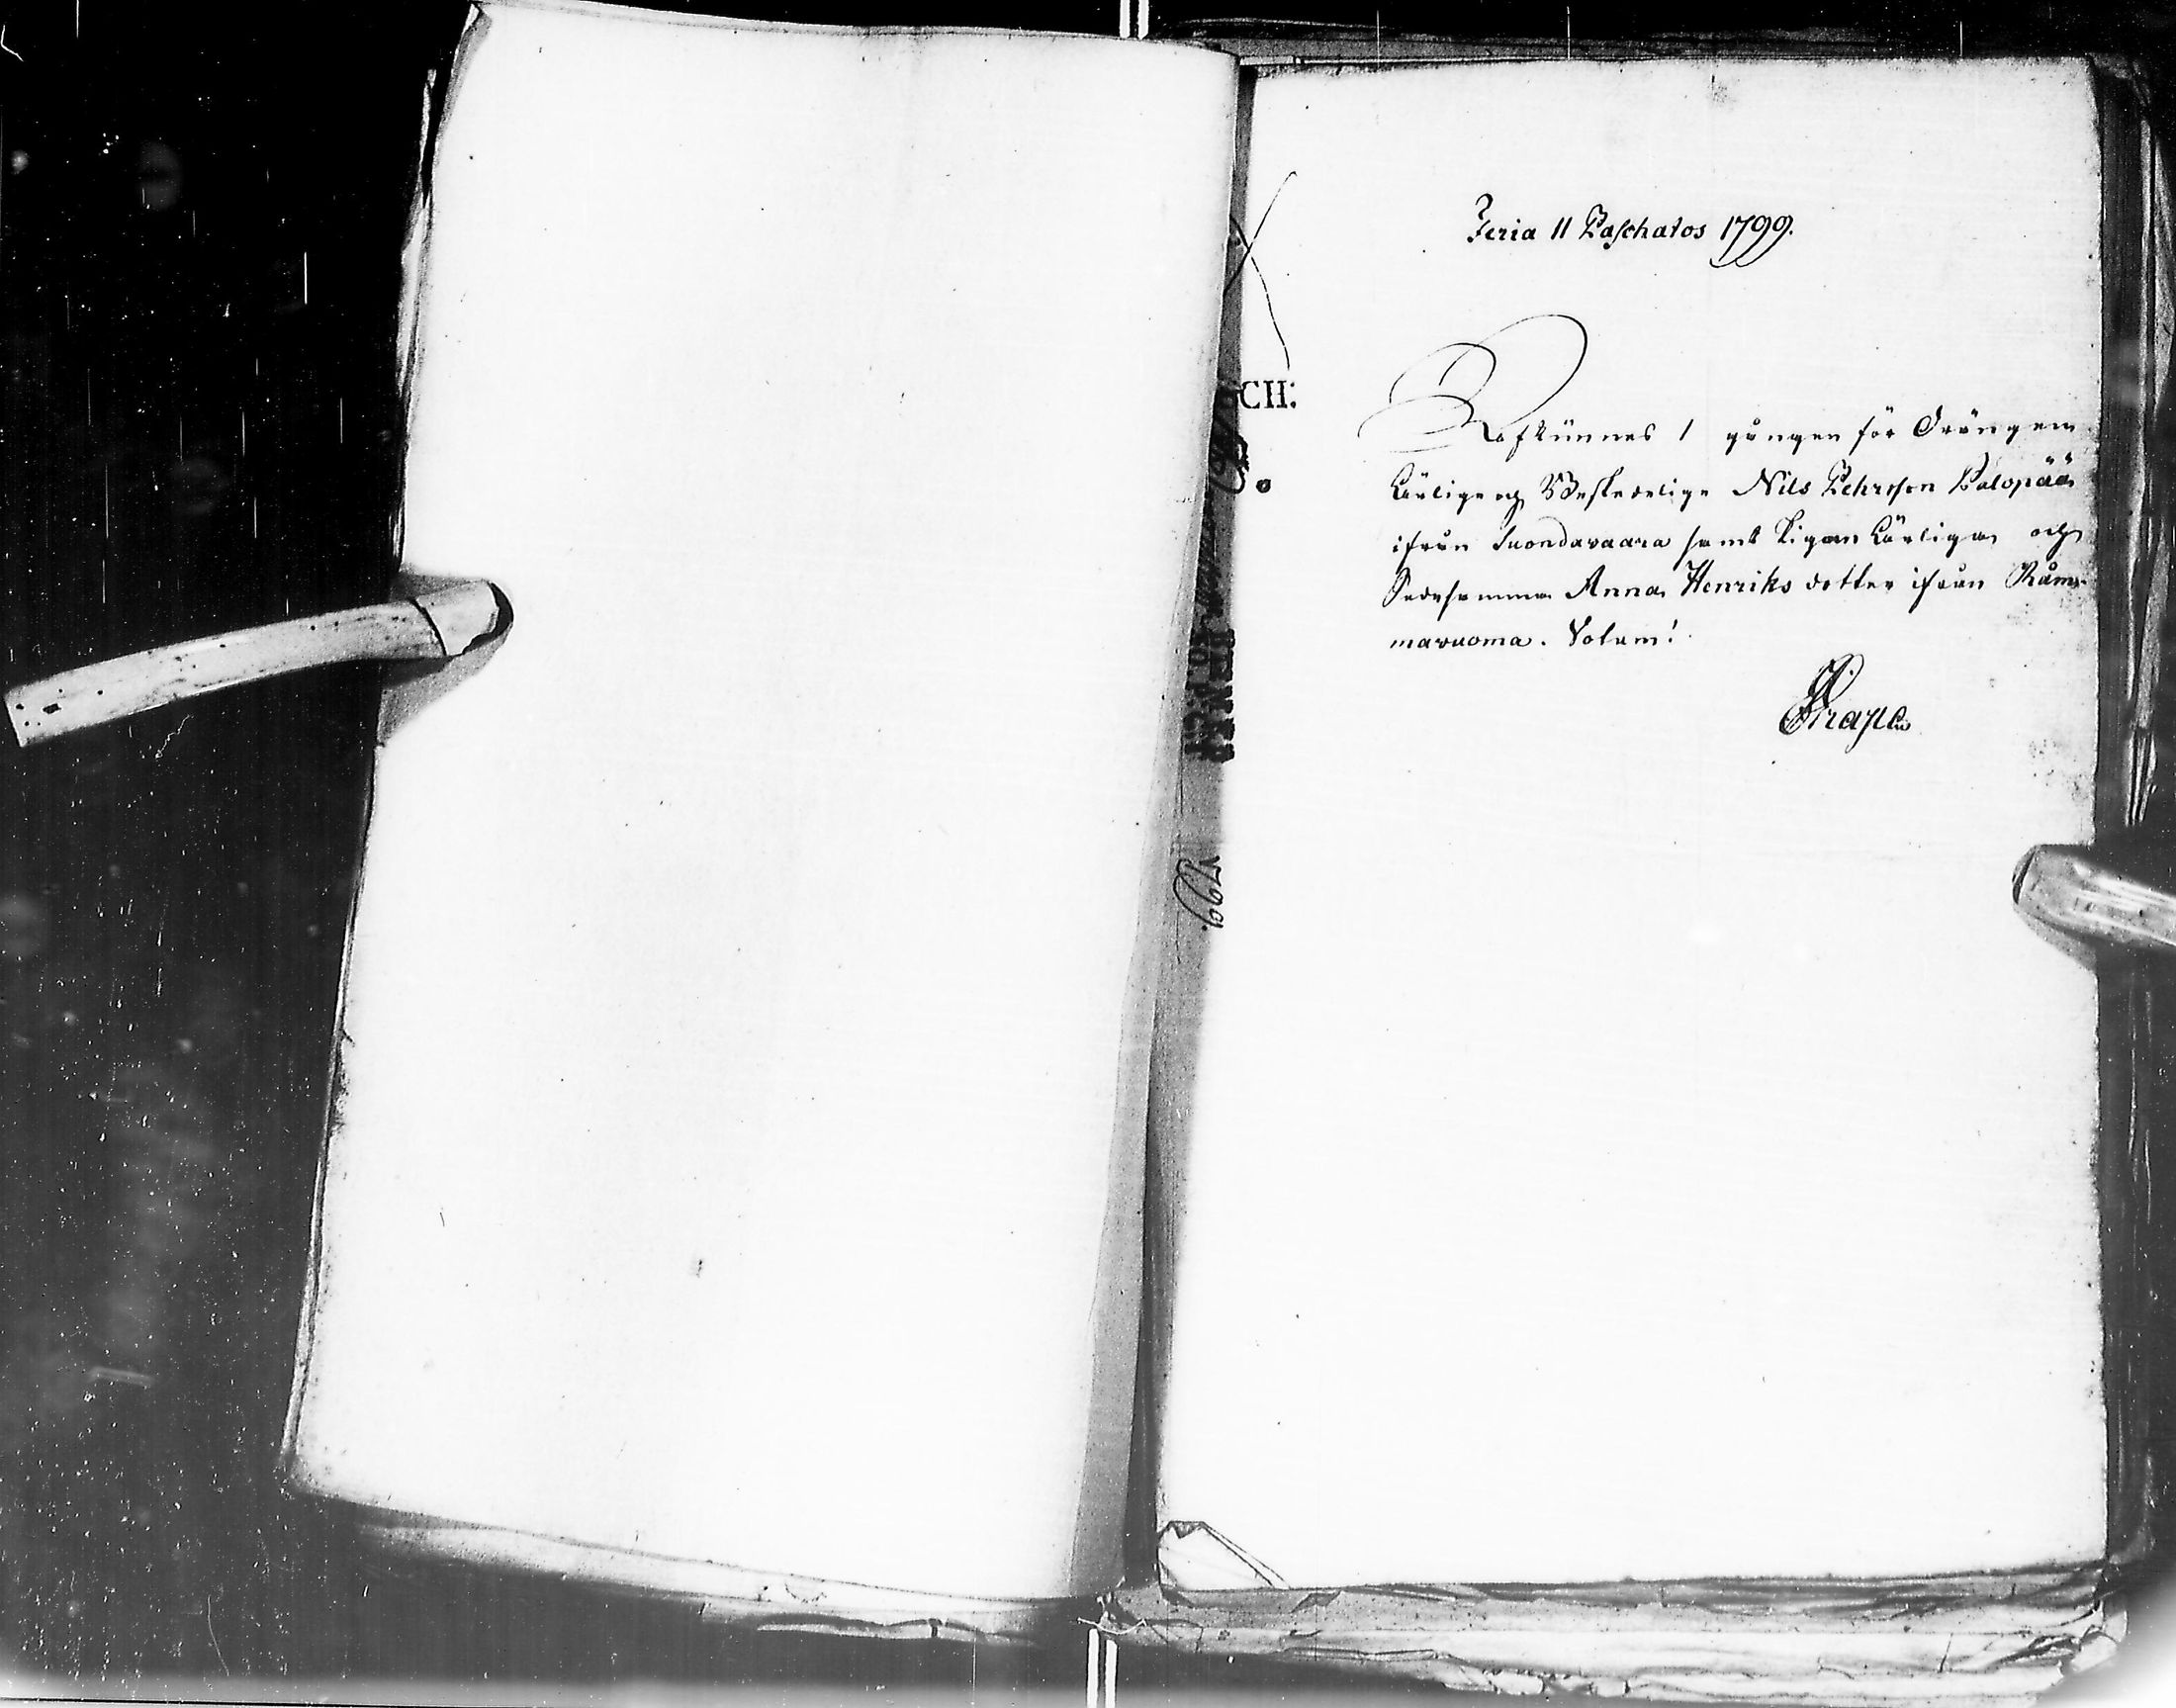 Feria II Paschatos 1799.
CH:
Afkünnes 1 gången för Drängen
Ärlige och Beskedelige Nils Pehrsson Palopää
ifrån Suondavaara samt Pigan Ärliga och
Sedesamma Anna Henriks dotter ifrån Råm-
mavuoma. Votum!
1799.